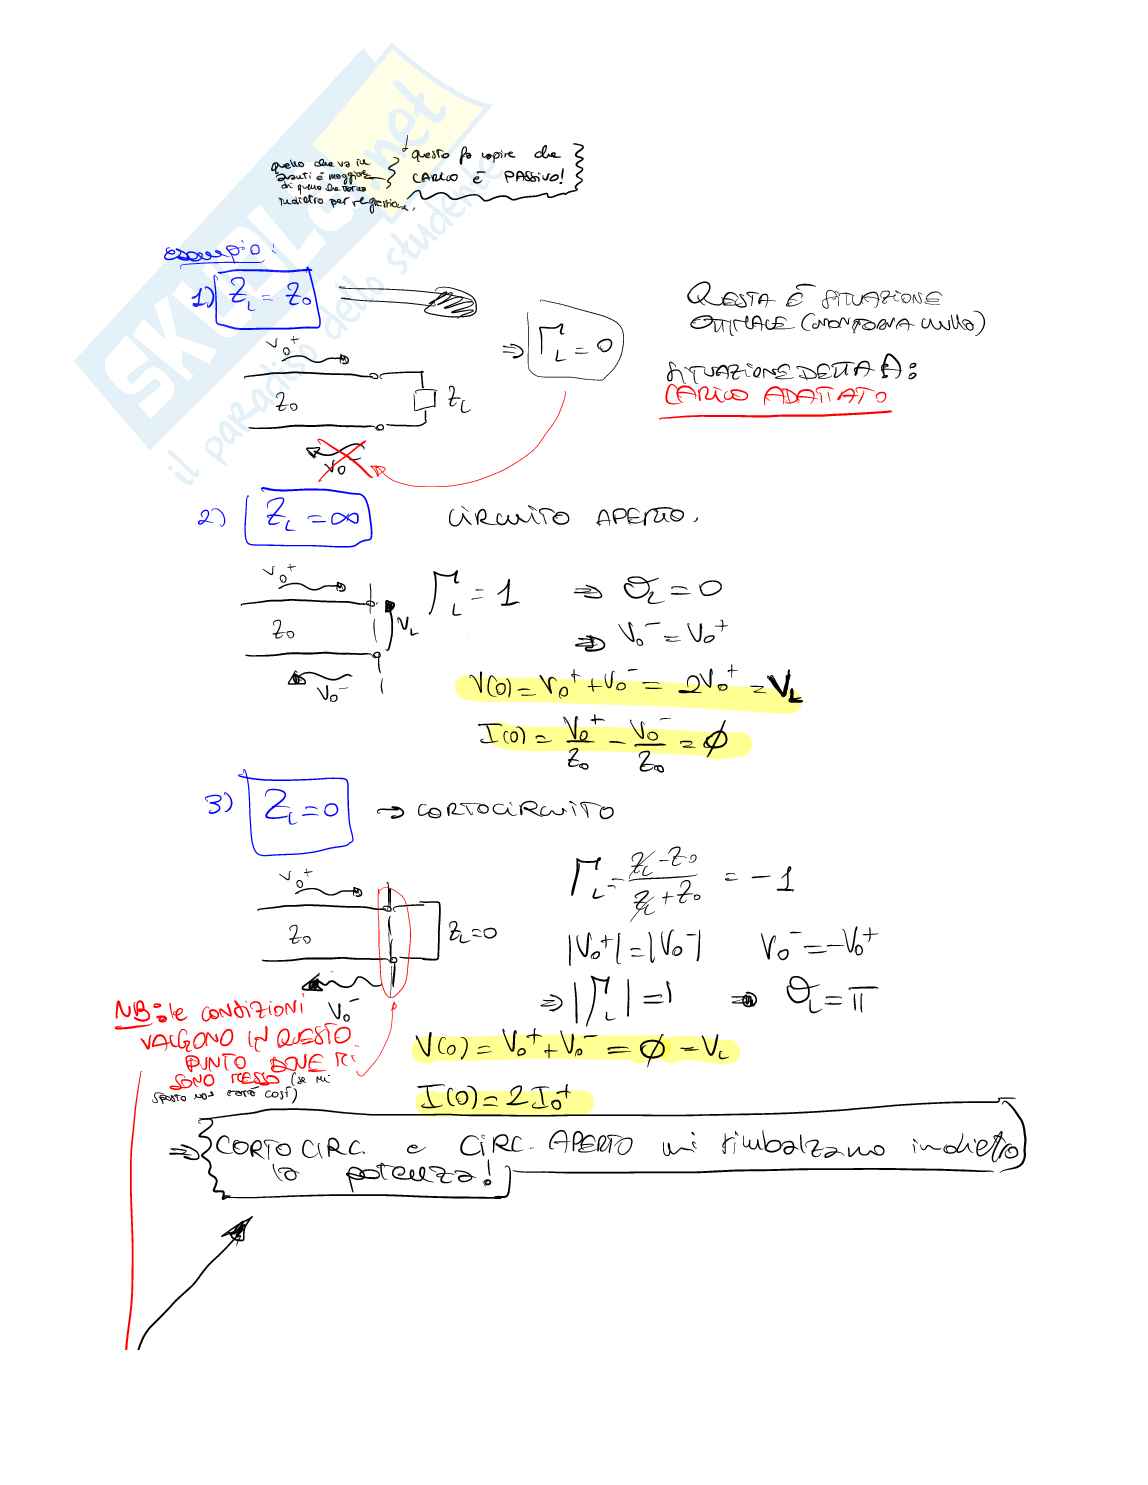 SKUOLA.net
il paradiso dello studente
quello che va in
avanti è maggiore
di quello che torna
indietro per riflessione.
questo fa capire che
CARICO È PASSIVO!
esempio:
1) Z_L = Z_0
V_0^+
Z_0
Z_L
V_0^-
⇒ Γ_L = 0
QUESTA È SITUAZIONE
OTTIMALE (NON TORNA NULLA)
SITUAZIONE DETTA A:
CARICO ADATTATO
2) Z_L = ∞
CIRCUITO APERTO.
V_0^+
Z_0
V_L
V_0^-
Γ_L = 1 ⇒ θ_L = 0
⇒ V_0^- = V_0^+
V(0) = V_0^+ + V_0^- = 2V_0^+ = V_L
I(0) = V_0^+/Z_0 - V_0^-/Z_0 = ϕ
3) Z_L = 0 → CORTOCIRCUITO
V_0^+
Z_0
Z_L = 0
V_0^-
Γ_L = (Z_L - Z_0)/(Z_L + Z_0) = -1
|V_0^+| = |V_0^-| V_0^- = -V_0^+
⇒ |Γ_L| = 1 ⇒ θ_L = π
NB: le CONDIZIONI
VALGONO IN QUESTO
PUNTO DOVE MI
SONO MESSO (se mi
sposto non sarà così)
V(0) = V_0^+ + V_0^- = ϕ = V_L
I(0) = 2I_0^+
⇒ CORTO CIRC. e CIRC. APERTO mi rimbalzano indietro
la potenza!